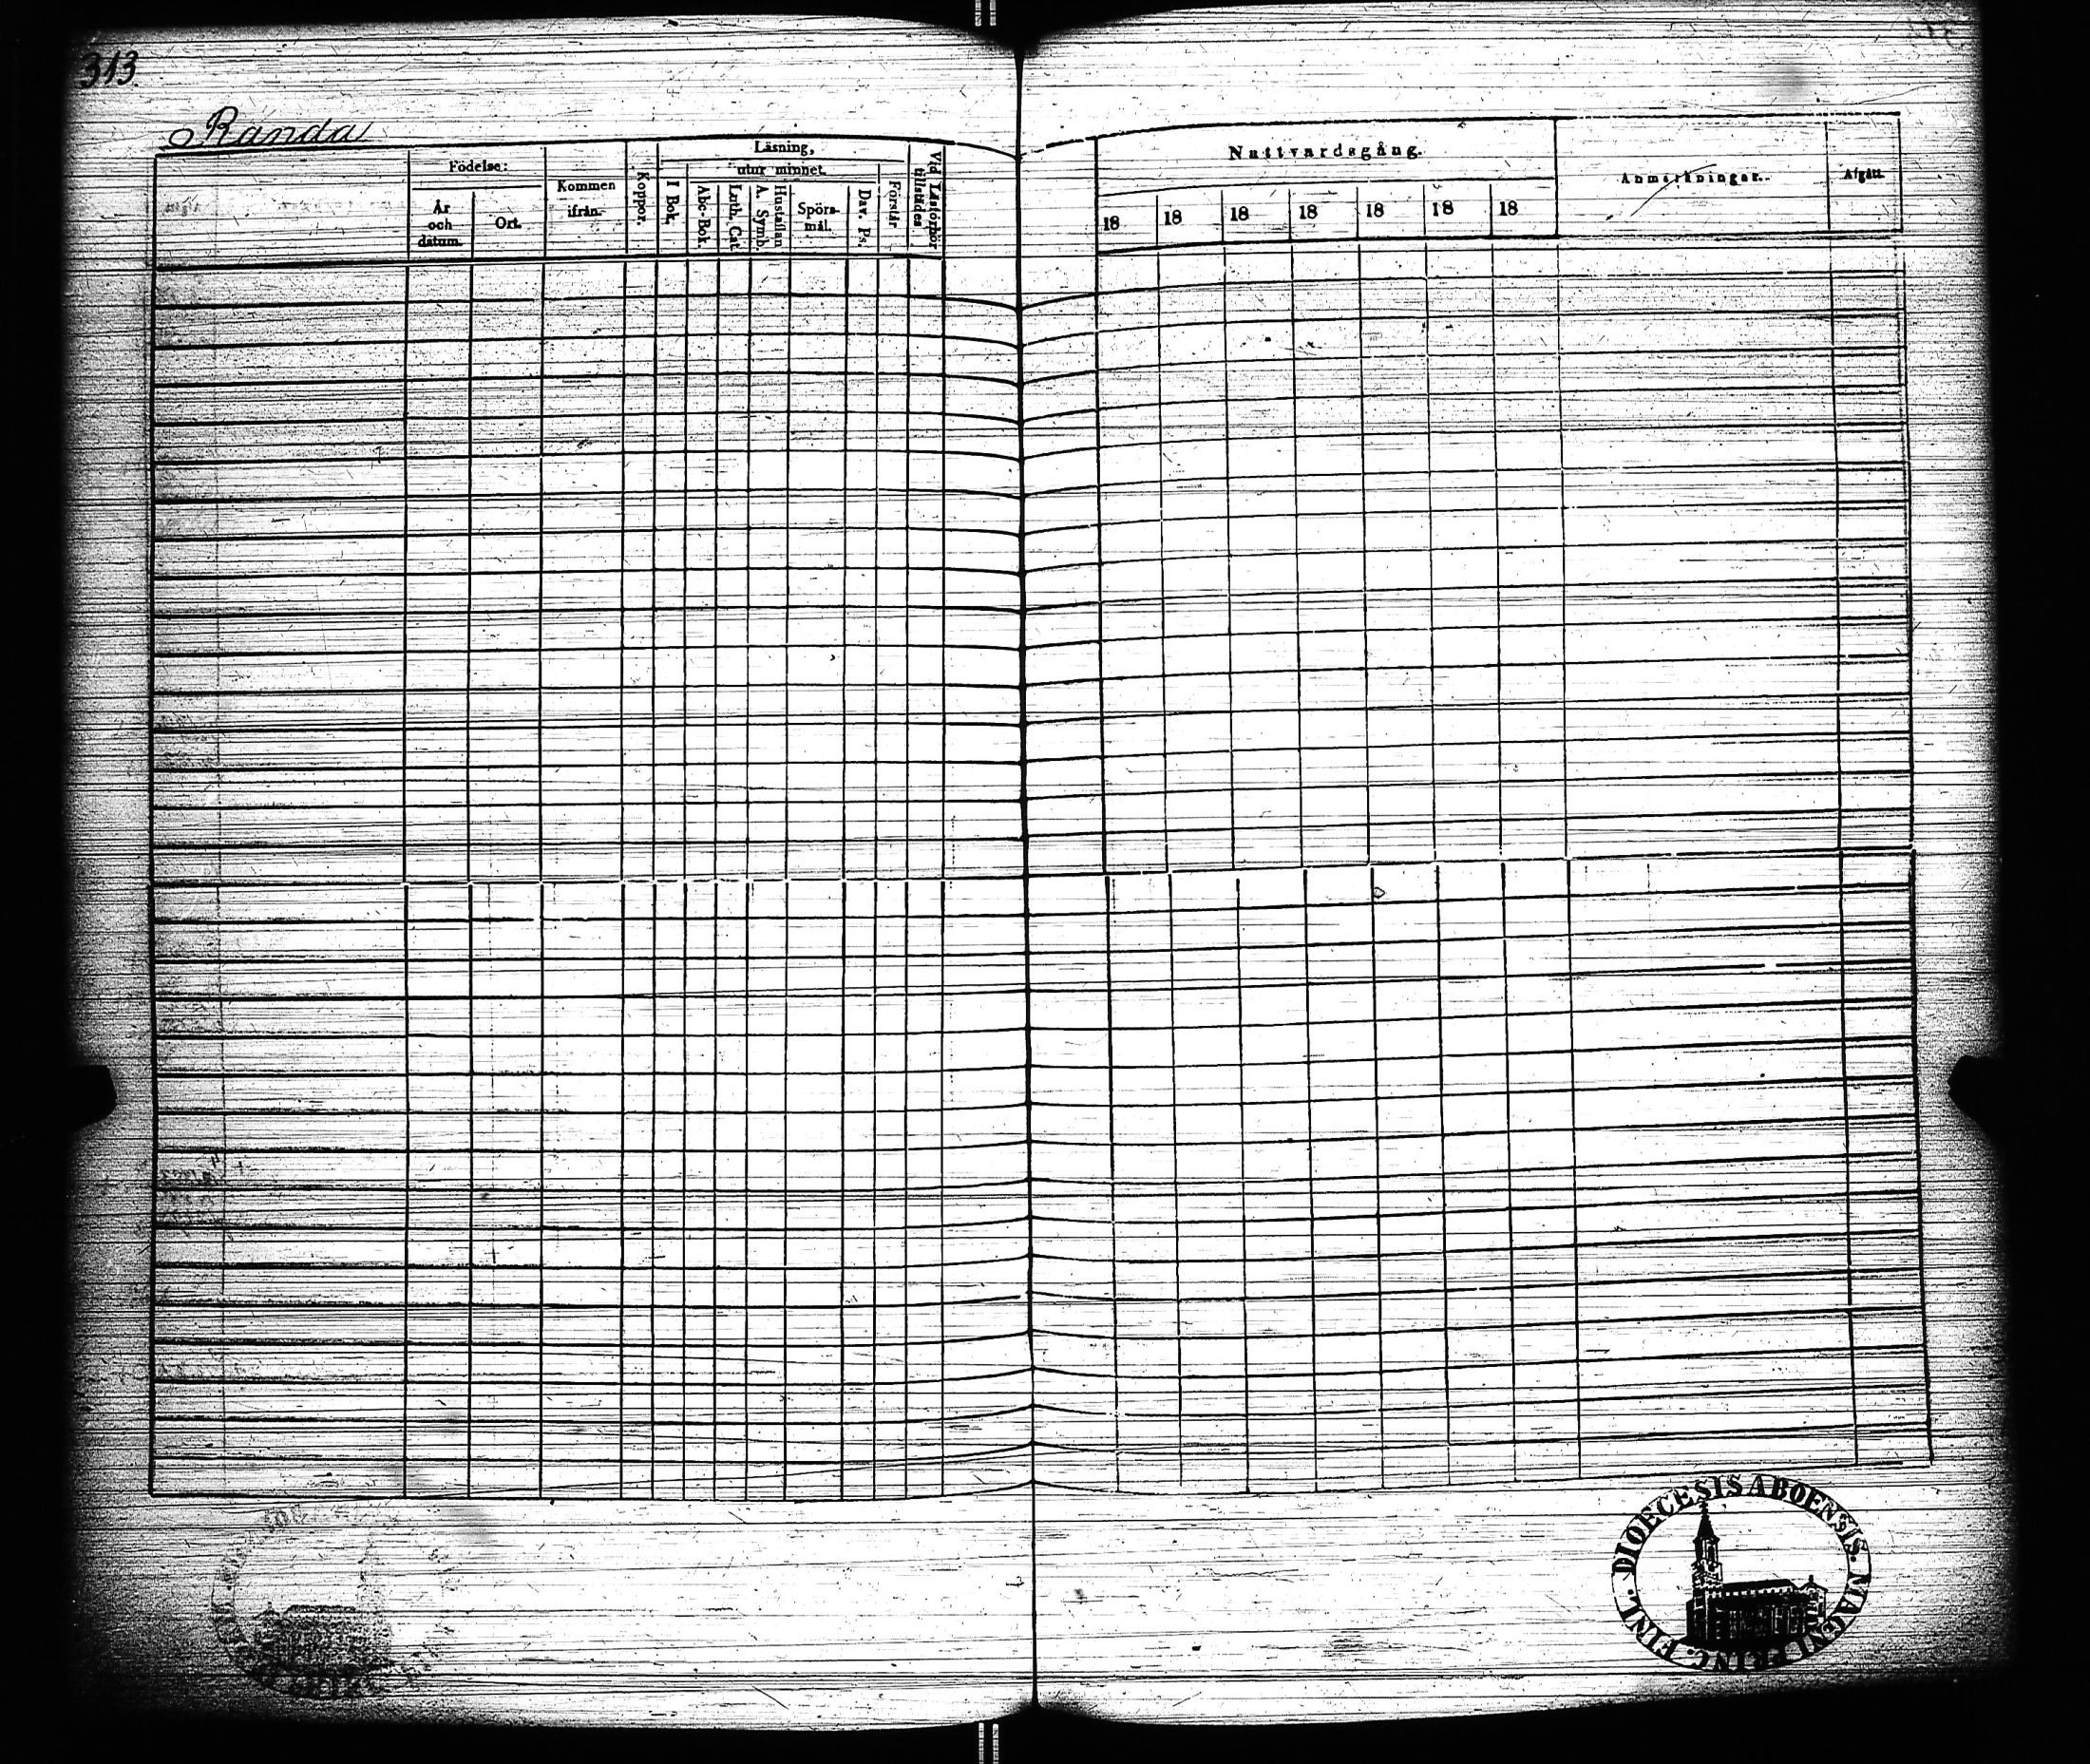 313.
Randa
Födelse:
År och datum.
Ort.
Kommen ifrån.
Koppor.
Läsning,
utur minnet.
I Bok.
Abc-Bok.
Luth. Cat.
A. Symb. Hustaflan
Spörsmål.
Dav. Ps.
Förstår
Vid Läsförhör tillstädes
Nattvardsgång.
18 18 18 18 18 18 18
Anmärkningar.
Afgått.
DIOECESIS ABOENSIS. MAGNI PRINC. FINL.